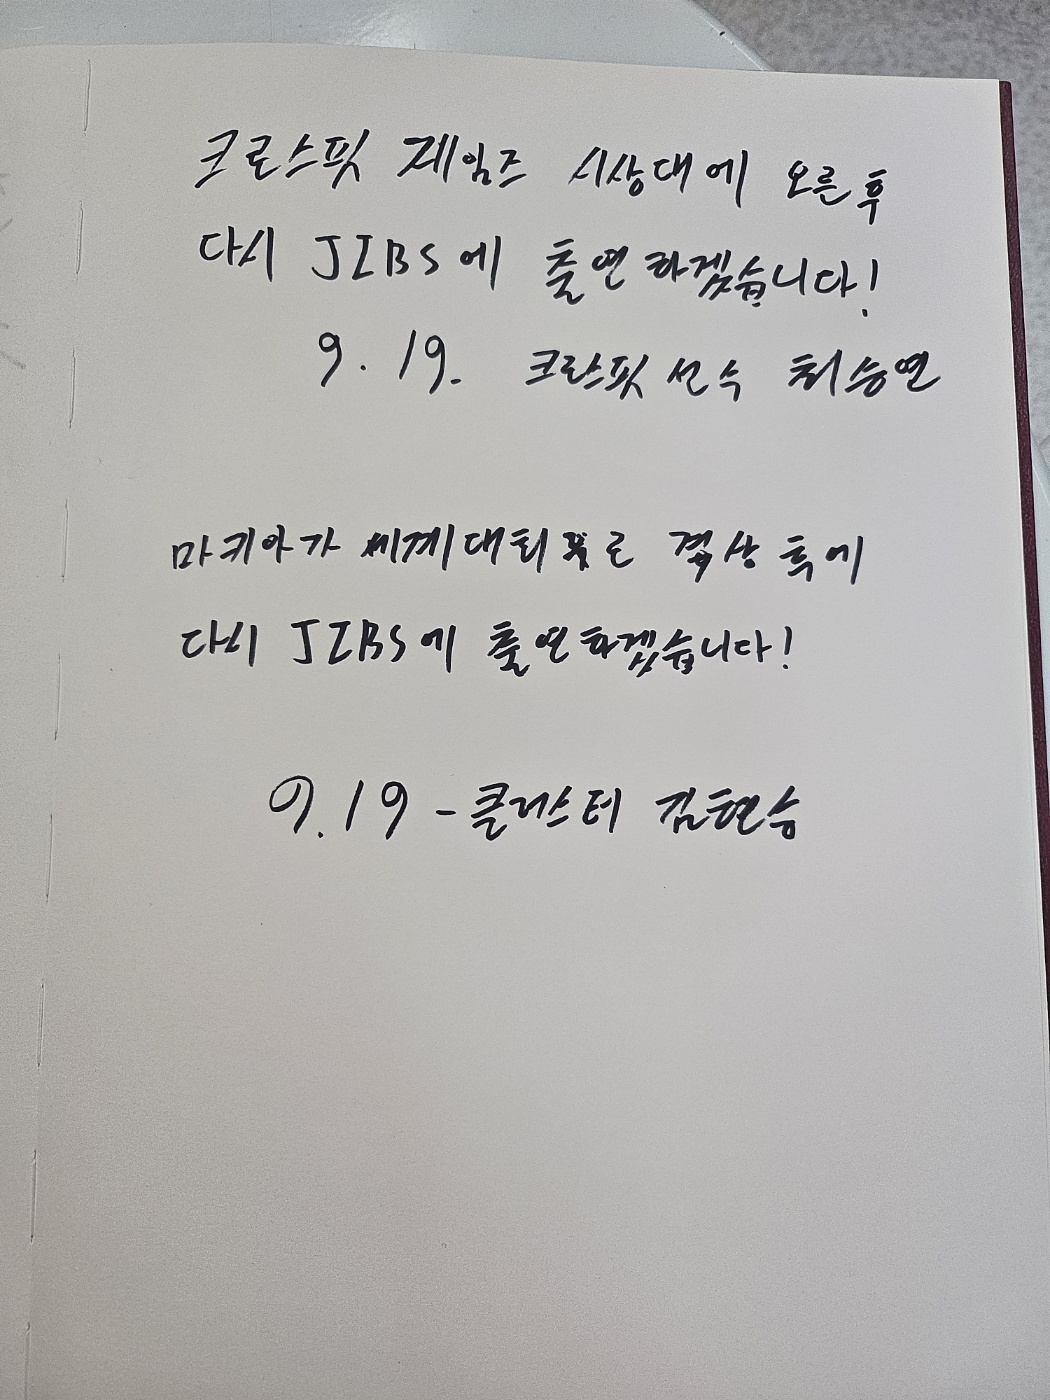 크로스핏 게임즈 시상대에 오른 후
다시 JIBS에 출연하겠습니다!
9. 19. 크로스핏 선수 최승연
세계대회
다시 JIBS에 출연하겠습니다!
9. 19 - 김현승